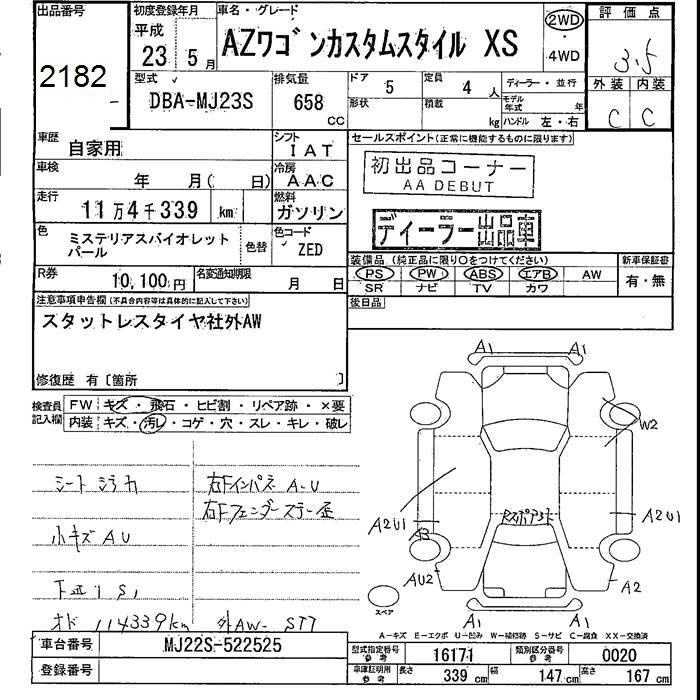 出品番号
2182
初度登録年月
平成
23 5月
車名・グレード
AZワゴンカスタムスタイル XS
2WD
・
4WD
評価点
3.5
外装 内装
C C
型式
DBA-MJ23S
排気量
658
CC
ドア 5
定員 4 人
形状
積載 kg
ディーラー・並行
モデル年式 年
ハンドル 左・右
車歴
自家用
シフト
IAT
車検
年 月( 日)
冷房
AAC
走行
11万4千339 km
燃料
ガソリン
色
ミステリアスバイオレットパール
色替
色コード
ZED
R券
10,100円
名変通知期限
月 日
セールスポイント(正常に機能するものに限ります)
初出品コーナー
AA DEBUT
ディーラー出品車
装備品 (純正品に限り○をつけてください)
PS PW ABS エアB AW
SR ナビ TV カワ
新車保証書
有・無
後日品
注意事項申告欄(不具合内容等は具体的に記入して下さい)
スタットレスタイヤ社外AW
修復歴 有〔箇所 〕
検査員記入欄
FW キズ・飛石・ヒビ割・リペア跡・×要
内装 キズ・汚レ・コゲ・穴・スレ・キレ・破レ
シート シミ
右Fインパネ A-U
右Fフェンダーステー歪
小キズ AU
下廻り S1
オド 114339km
外AW- STT
A1 A1
W2
A2U1
A2U1
A3
AU2
A2
A1 A1
スペア
A-キズ E-エクボ U-凹み W-補修跡 S-サビ C-腐食 XX-交換済
車台番号
MJ22S-522525
登録番号
型式指定番号
参考
16171
類別区分番号
参考
0020
車庫証明用
参考
長さ 339 cm
幅 147 cm
高さ 167 cm